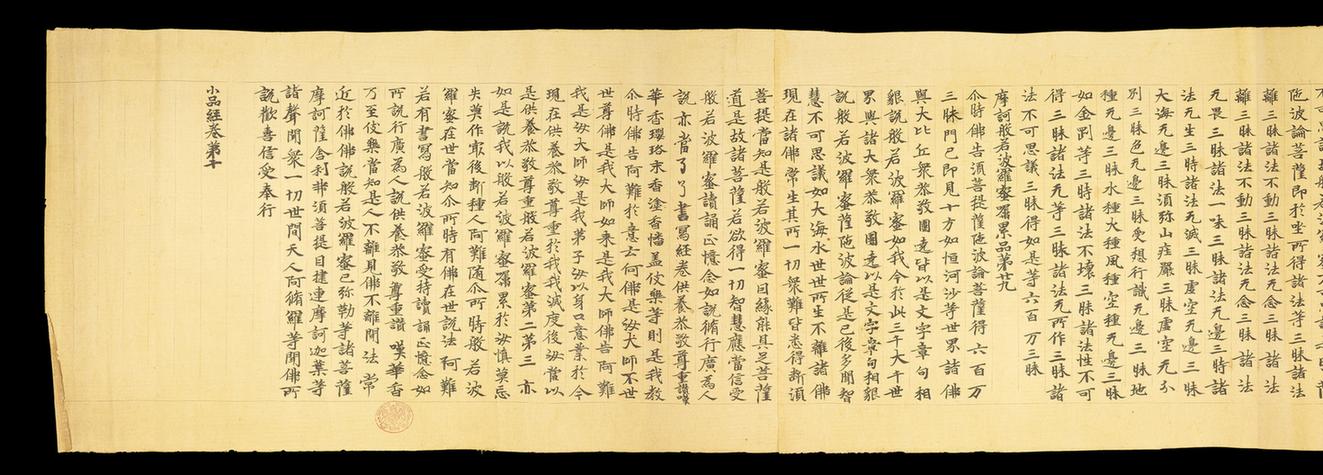 陁波論菩薩即於坐所得諸法等三昧諸法
離三昧諸法不動三昧諸法无念三昧諸法
離三昧諸法不動三昧諸法无念三昧諸法
无畏三昧諸法一味三昧諸法无邊三昧諸
法无生三昧諸法无滅三昧虛空无邊三昧
大海无邊三昧須弥山莊嚴三昧虛空无分
別三昧色无邊三昧受想行識无邊三昧地
種无邊三昧水種火種風種空種无邊三昧
如金剛等三昧諸法不壞三昧諸法性不可
得三昧諸法无等三昧諸法无所作三昧諸
法不可思議三昧得如是等六百万三昧
摩訶般若波羅蜜囑累品第廿九
尒時佛告須菩提薩陁波論菩薩得六百万
三昧門已即見十方如恒河沙等世界諸佛
與大比丘衆恭敬圍遶皆以是文字章句相
貌說般若波羅蜜如我今於此三千大千世
界與諸大衆恭敬圍遶以是文字章句相貌
說般若波羅蜜薩陁波論從是已後多聞智
慧不可思議如大海水世世所生不離諸佛
現在諸佛常生其所一切衆難皆悉得斷須
菩提當知是般若波羅蜜因緣能具足菩薩
道是故諸菩薩若欲得一切智慧應當信受
般若波羅蜜讀誦正憶念如說脩行廣為人
說亦當了了書寫經卷供養恭敬尊重讃歎
華香瓔珞末香塗香幡盖伎樂等則是我教
尒時佛告阿難於意云何佛是汝大師不世
世尊佛是我大師如来是我大師佛告阿難
我是汝大師汝是我弟子汝以身口意業於今
現在供養恭敬尊重於我我滅度後汝當以
是供養恭敬尊重般若波羅蜜第二第三亦
如是說我以般若波羅蜜囑累於汝慎莫忘
失莫作㝡後斷種人阿難随尒所時般若波
羅蜜在世當知尒所時有佛在世說法阿難
若有書寫般若波羅蜜受持讀誦正憶念如
所說行廣為人說供養恭敬尊重讃嘆華香
乃至伎樂當知是人不離見佛不離聞法常
近於佛佛說般若波羅蜜已弥勒等諸菩薩
摩訶薩舍利弗須菩提目揵連摩訶迦葉等
諸聲聞衆一切世間天人阿脩羅等聞佛所
說歡喜信受奉行
小品經卷第十